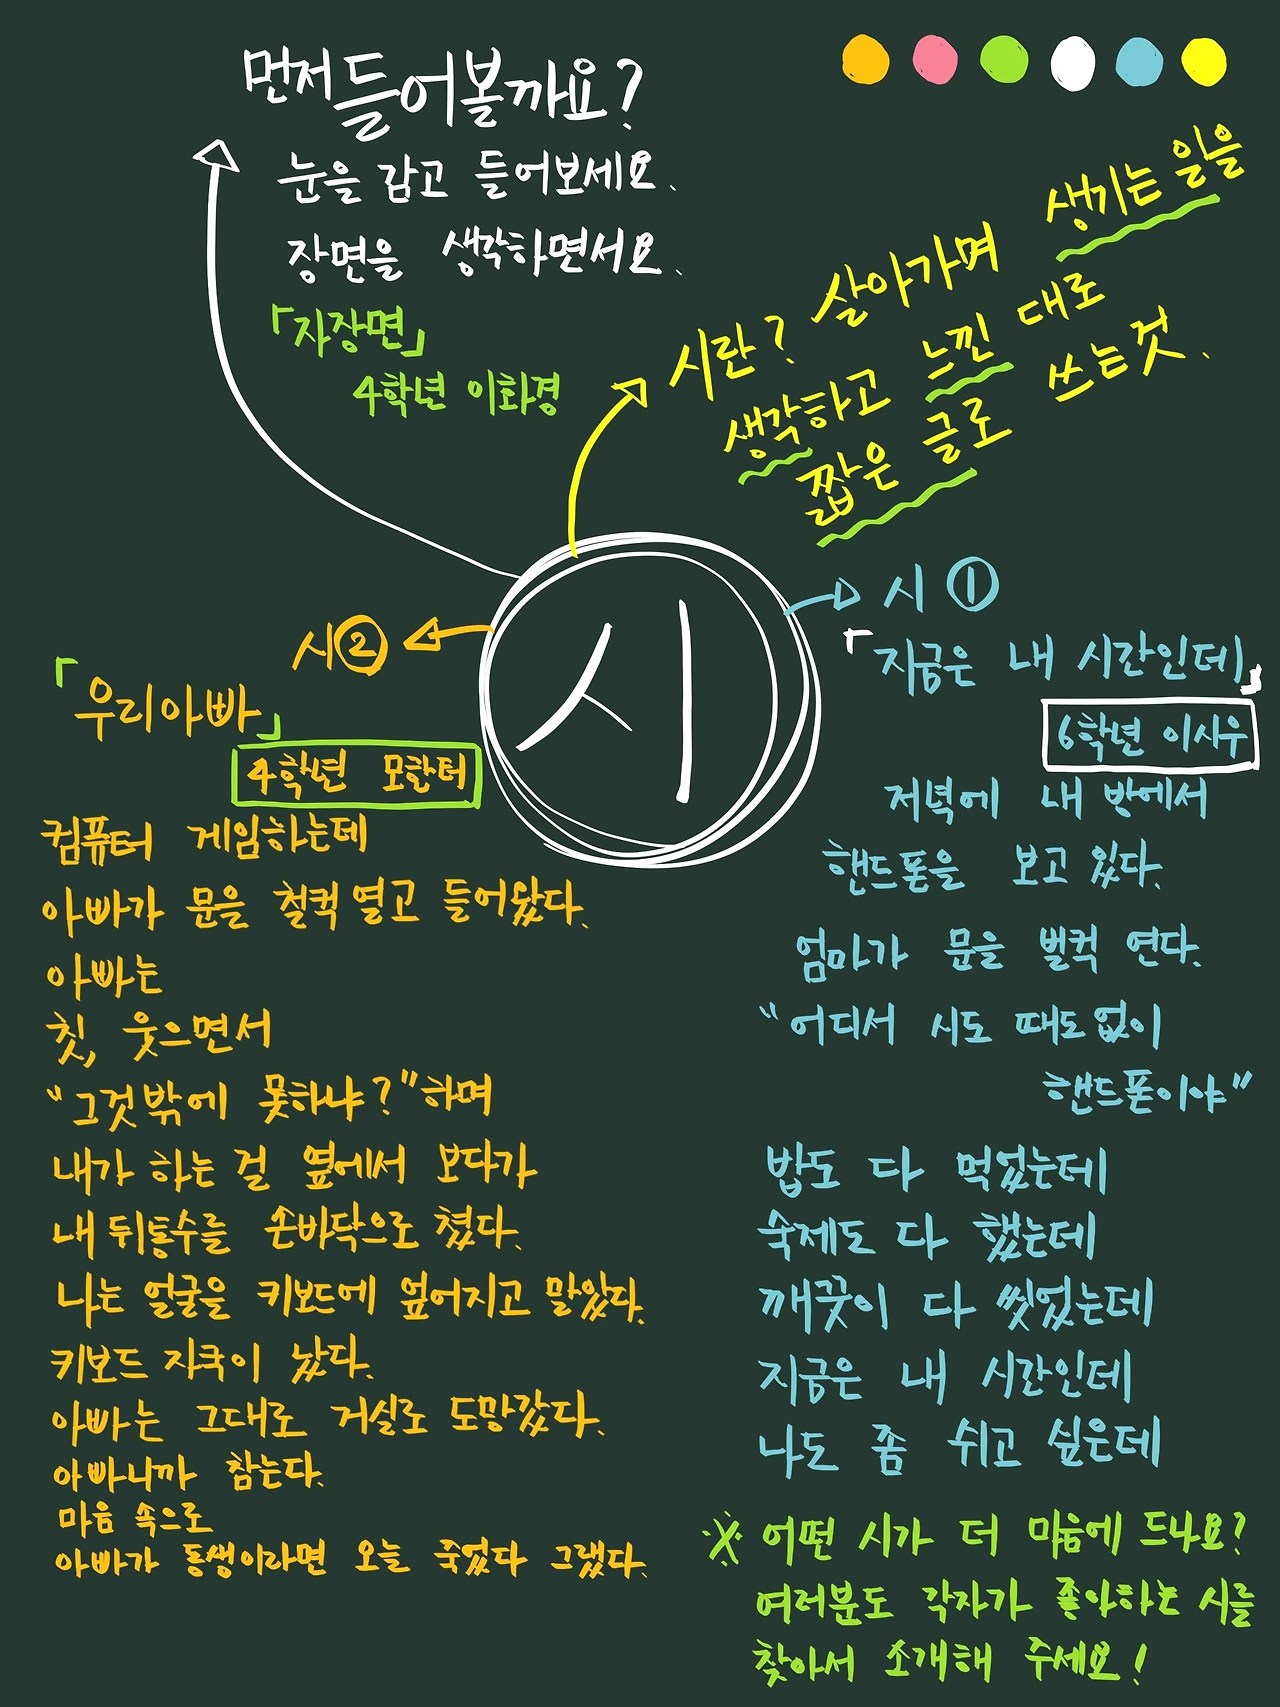 먼저 들어볼까요?
눈을 감고 들어보세요.
장면을 생각하면서요.
「자장면」
4학년 이화경
시란? 살아가며 생기는 일을
생각하고 느낀 대로
짧은 글로 쓰는것.
시
시①
「지금은 내 시간인데」
6학년 이사우
저녁에 내 방에서
핸드폰을 보고 있다.
엄마가 문을 벌컥 연다.
"어디서 시도 때도없이
핸드폰이야"
밥도 다 먹었는데
숙제도 다 했는데
깨끗이 다 씻었는데
지금은 내 시간인데
나도 좀 쉬고 싶은데
시②
「우리아빠」
4학년 모한터
컴퓨터 게임하는데
아빠가 문을 철컥 열고 들어왔다.
아빠는
칫, 웃으면서
"그것밖에 못하냐?"하며
내가 하는 걸 옆에서 보다가
내 뒤통수를 손바닥으로 쳤다.
나는 얼굴을 키보드에 엎어지고 말았다.
키보드 자국이 났다.
아빠는 그대로 거실로 도망갔다.
아빠니까 참는다.
마음 속으로
아빠가 동생이라면 오늘 죽었다 그랬다.
※ 어떤 시가 더 마음에 드나요?
여러분도 각자가 좋아하는 시를
찾아서 소개해 주세요!